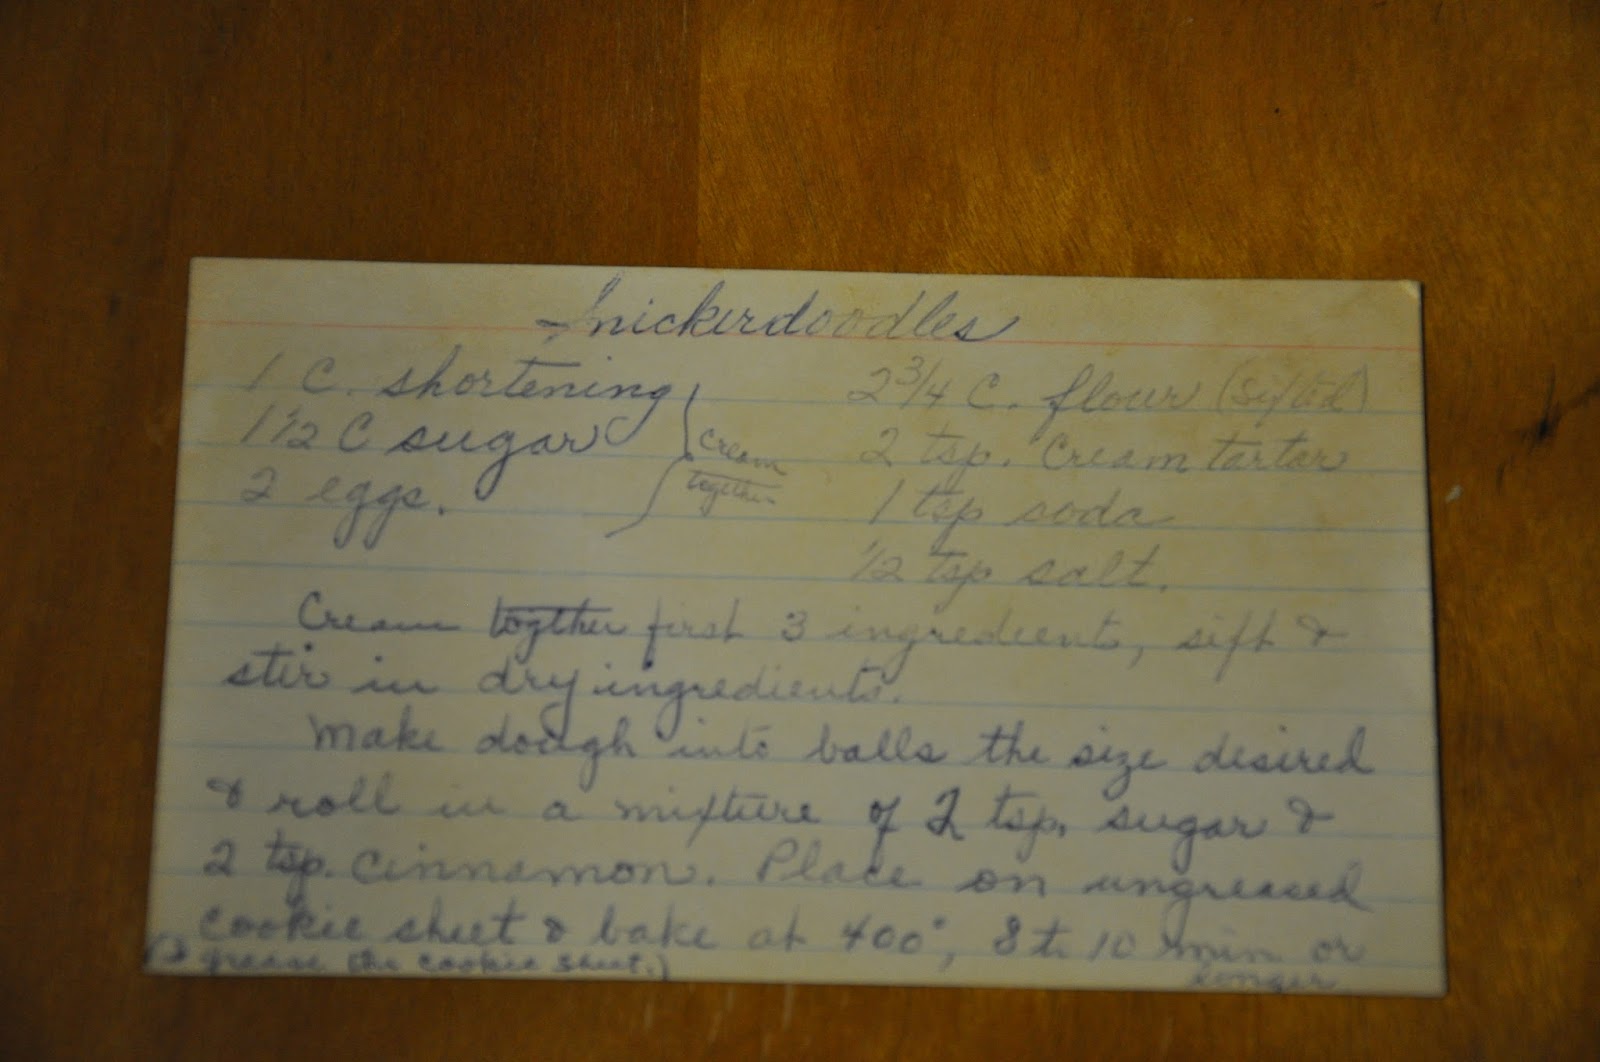 Snickerdoodles
1 C. shortening
1 1/2 C sugar
2 eggs.
cream
together
2 3/4 C. flour (sifted)
2 tsp. Cream tartar
1 tsp soda
1/2 tsp salt.
Cream together first 3 ingredients, sift &
stir in dry ingredients.
Make dough into balls the size desired
& roll in a mixture of 2 tsp. sugar &
2 tsp. cinnamon. Place on ungreased
cookie sheet & bake at 400°, 8 to 10 min or
longer
(I grease the cookie sheet.)